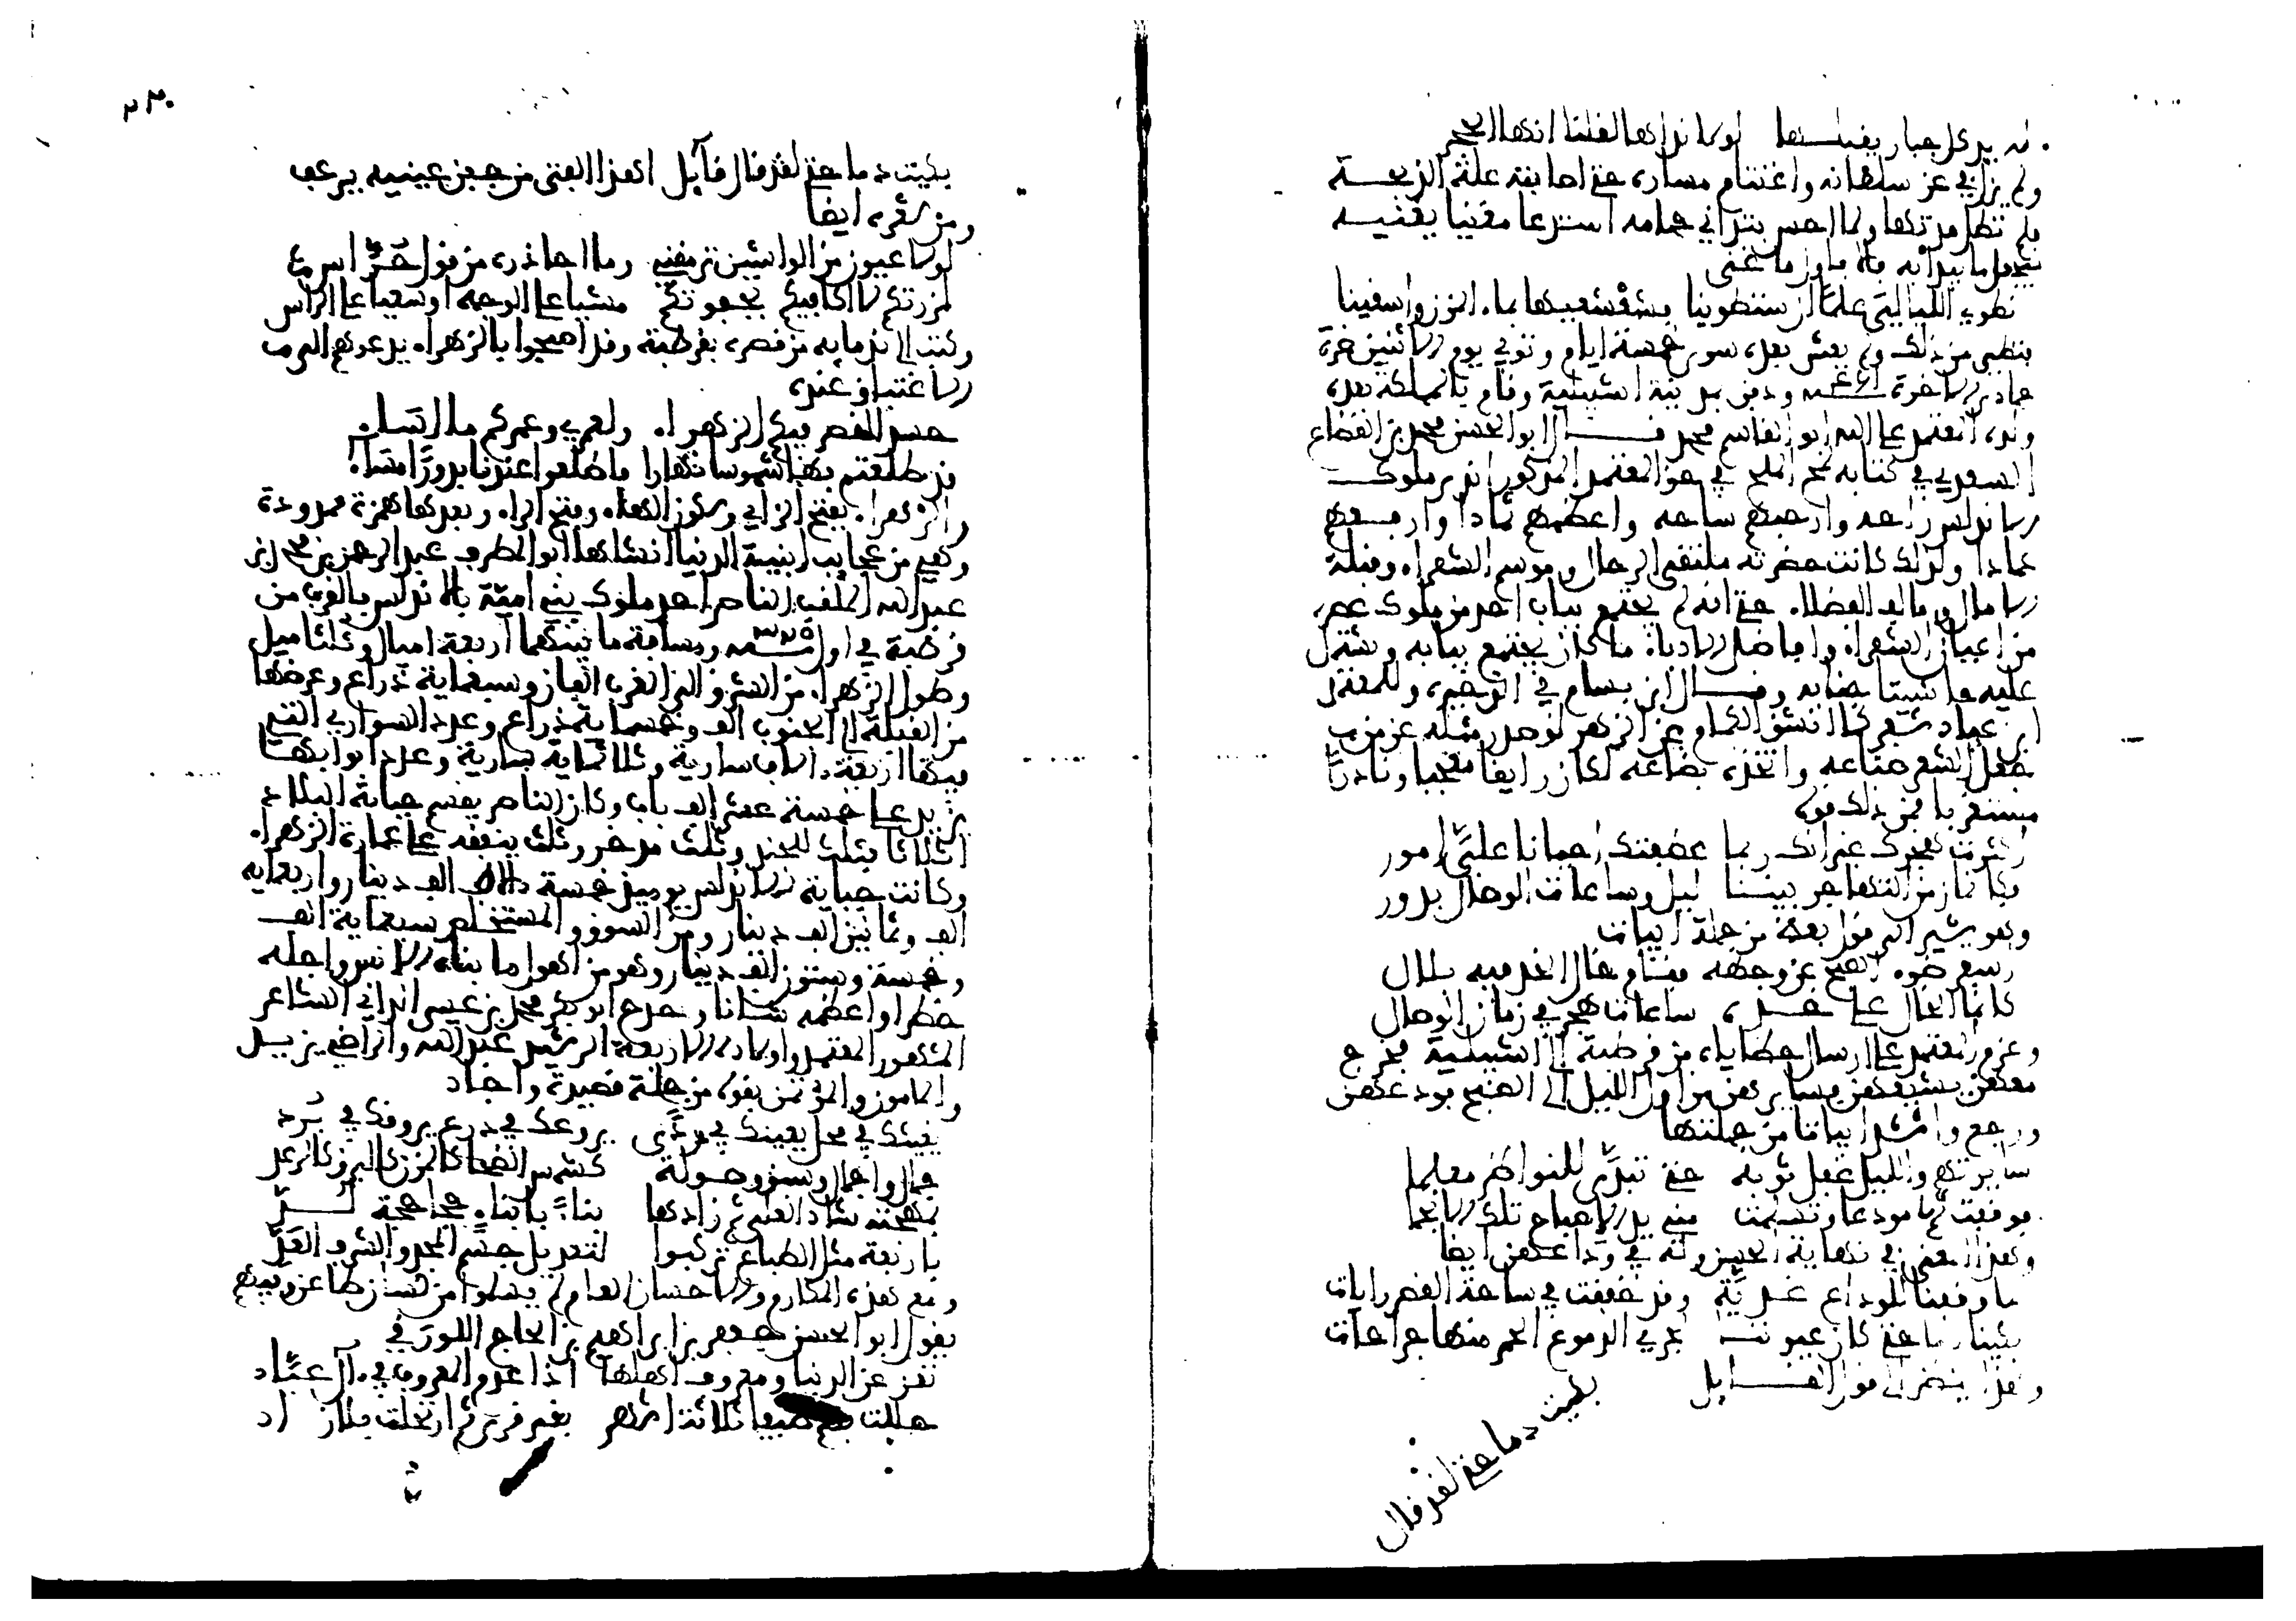 له يد كل جبار يقبلها لولا نداها لقلنا انها الحجر
ولم يزل في عز سلطانه واغتنام مساره حتى اصابته علة الذبحة
فلم تطل مدتها ولما احس بتداني حمامه استدعا مغنيا يغنيه
ليجعل ما يبدا به فالا فاول ما غنى
نطوي الليالي علما ان ستطوينا فشعشعيها بماء المزن واسقينا
فتطير من ذلك ولم يعش بعده سوى خمسة ايام وتوفي يوم الاثنين غرة
جمادى الاخرة سنة ودفن بمدينة اشبيلية وقام بالمملكة بعده
ولده المعتمد على الله ابو القاسم محمد قال ابو الحسن محمد بن القطاع
السعدي في كتابه لمح الملح في حق المعتمد المذكور اندى ملوك
الاندلس راحه وارحبهم ساحه واعظمهم ثمادا وارفعهم
عمادا ولذلك كانت حضرته ملتقى الرحال وموسم الشعراء وقبلة
الامال ومالف الفضلاء حتى انه لم يجتمع بباب احد من ملوك عصره
من اعيان الشعراء وافاضل الادباء ما كان يجتمع ببابه وتشتمل
عليه حاشيتا جنابه وقال ابن بسام في الذخيره وللمعتمد
ابن عباد شعر كما انشق الكمام عن الزهر لو صدر مثله عن من
جعل الشعر صناعه واتخذه بضاعه لكان رايقا معجبا ونادرا
مستغربا فمن ذلك قوله
اكثرت هجرك غير انك ربما عطفتك احيانا علي امور
فكانما زمن التهاجر بيننا ليل وساعات الوصال بدور
وهو يشير الى قول بعضهم من جملة ابيات
اسفر ضوء الصبح عن وجهه فقام خال الخد فيه بلال
كانما الخال على خده ساعات هجر في زمان الوصال
وعزم المعتمد على ارسال حظاياه من قرطبة الى اشبيلية فخرج
معهن يشيعهن فسايرهن من اول الليل الى الصبح فودعهن
ورجع وانشد ابياتا من جملتها
سايرتهم والليل غفل ثوبه حتى تبدى للنواظر معلما
فوقفت ثم مودعا وتسلمت مني يد الاصباح تلك الانجما
وهذا المعنى في نهاية الحسن وله في وداعهن ايضا
ولما وقفنا للوداع غدية وقد خفقت في ساحة القصر رايات
بكينا دما حتى كان عيوننا بجري الدموع الحمر منها جراحات
وهذا ينظر الى قول القايل
بكيت دما حتى لقد قال
٢٣٠
بكيت دما حتى لقد قال قايل اهذا الفتى من جفن عينيه يرعف
ومن شعره ايضا
لولا عيون من الواشين ترمقني وما احاذره من قول حراس
لزرتكم لا اكافيكم بجفوتكم مشيا على الوجه او سعيا على الراس
وكتب الى ندمايه من قصره بقرطبة وقد اصبحوا بالزهراء يدعوهم الى
الاغتباق عنده
حسد القصر فيكم الزهراء ولعمري وعمركم ما اساء
قد طلعتم بها شموسا نهارا فاطلعوا عندنا بدورا مساء
والزهراء بفتح الزاي وسكون الهاء وفتح الراء وبعدها همزة ممدودة
وهي من عجايب ابنية الدنيا انشاها ابو المطرف عبد الرحمن بن محمد ابن
عبد الله الملقب الناصر احد ملوك بني امية بالاندلس بالقرب من
قرطبة في اول سنة ٣٢٥ ومسافة ما بينهما اربعة اميال وثلثا ميل
وطول الزهراء من الشرق الى الغرب الفان وسبعماية ذراع وعرضها
من القبلة الى الجنوب الف وخمسماية ذراع وعدد السواري التي
فيها اربعة الاف سارية وثلاثماية سارية وعدد ابوابها
يزيد على خمسة عشر الف باب وكان الناصر يقسم جباية البلاد
اثلاثا فثلث للجند وثلث مدخر وثلث ينفقه على عمارة الزهراء
وكانت جباية الاندلس يوميذ خمسة الاف الف دينار واربعماية
الف وثمانين الف دينار ومن السوق والمستخلص سبعماية الف
وخمسة وستون الف دينار وهو من اهول ما بناه الانس واجله
خطرا واعظمه شانا ومدح ابو بكر محمد بن عيسى الداني الشاعر
المشهور المعتمد واولاده الاربعة الرشيد عبد الله والراضي يزيد
والمامون والمؤتمن بقوله من جملة قصيدة واجاد
يغيثك في محل يعينك في ردى يروعك في درع يروقك في برد
جمال واجمال وسبق وصولة كشمس الضحى كالمزن كالبرق كالرعد
بمهجته شاد العلى ثم زادها بناء بابناء جحاجحة لد
باربعة مثل الطباع تركبوا لتعديل جسم المجد والشرف العد
ومع هذه المكارم والاحسان العام لم يسلموا من لسان طاعن وفيهم
يقول ابو الحسن جعفر بن ابراهيم بن الحاج اللورقي
تعز عن الدنيا ومعروف اهلها اذا عدم المعروف في آل عباد
حللت بهم ضيفا ثلاثة اشهر بغير قرى ثم ارتحلت بلا زاد